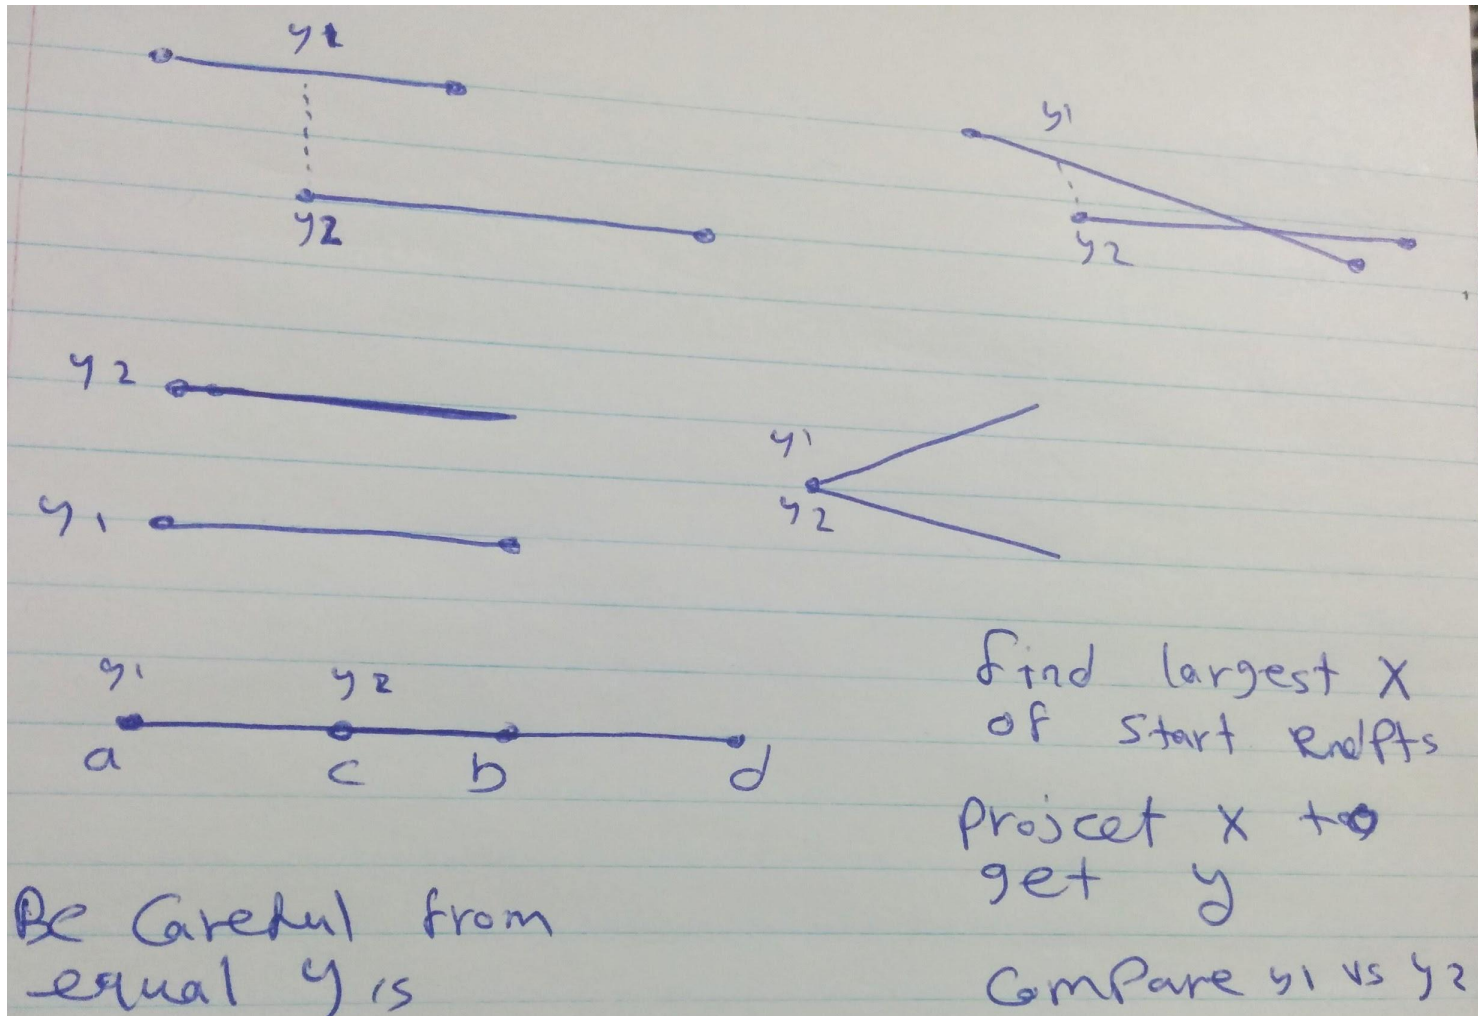 y1
y2
y1
y2
y2
y1
y1
y2
y1 y2
a c b d
Be Careful from
equal y is
find largest X
of start endpts
Projcet X to
get y
Compare y1 vs y2